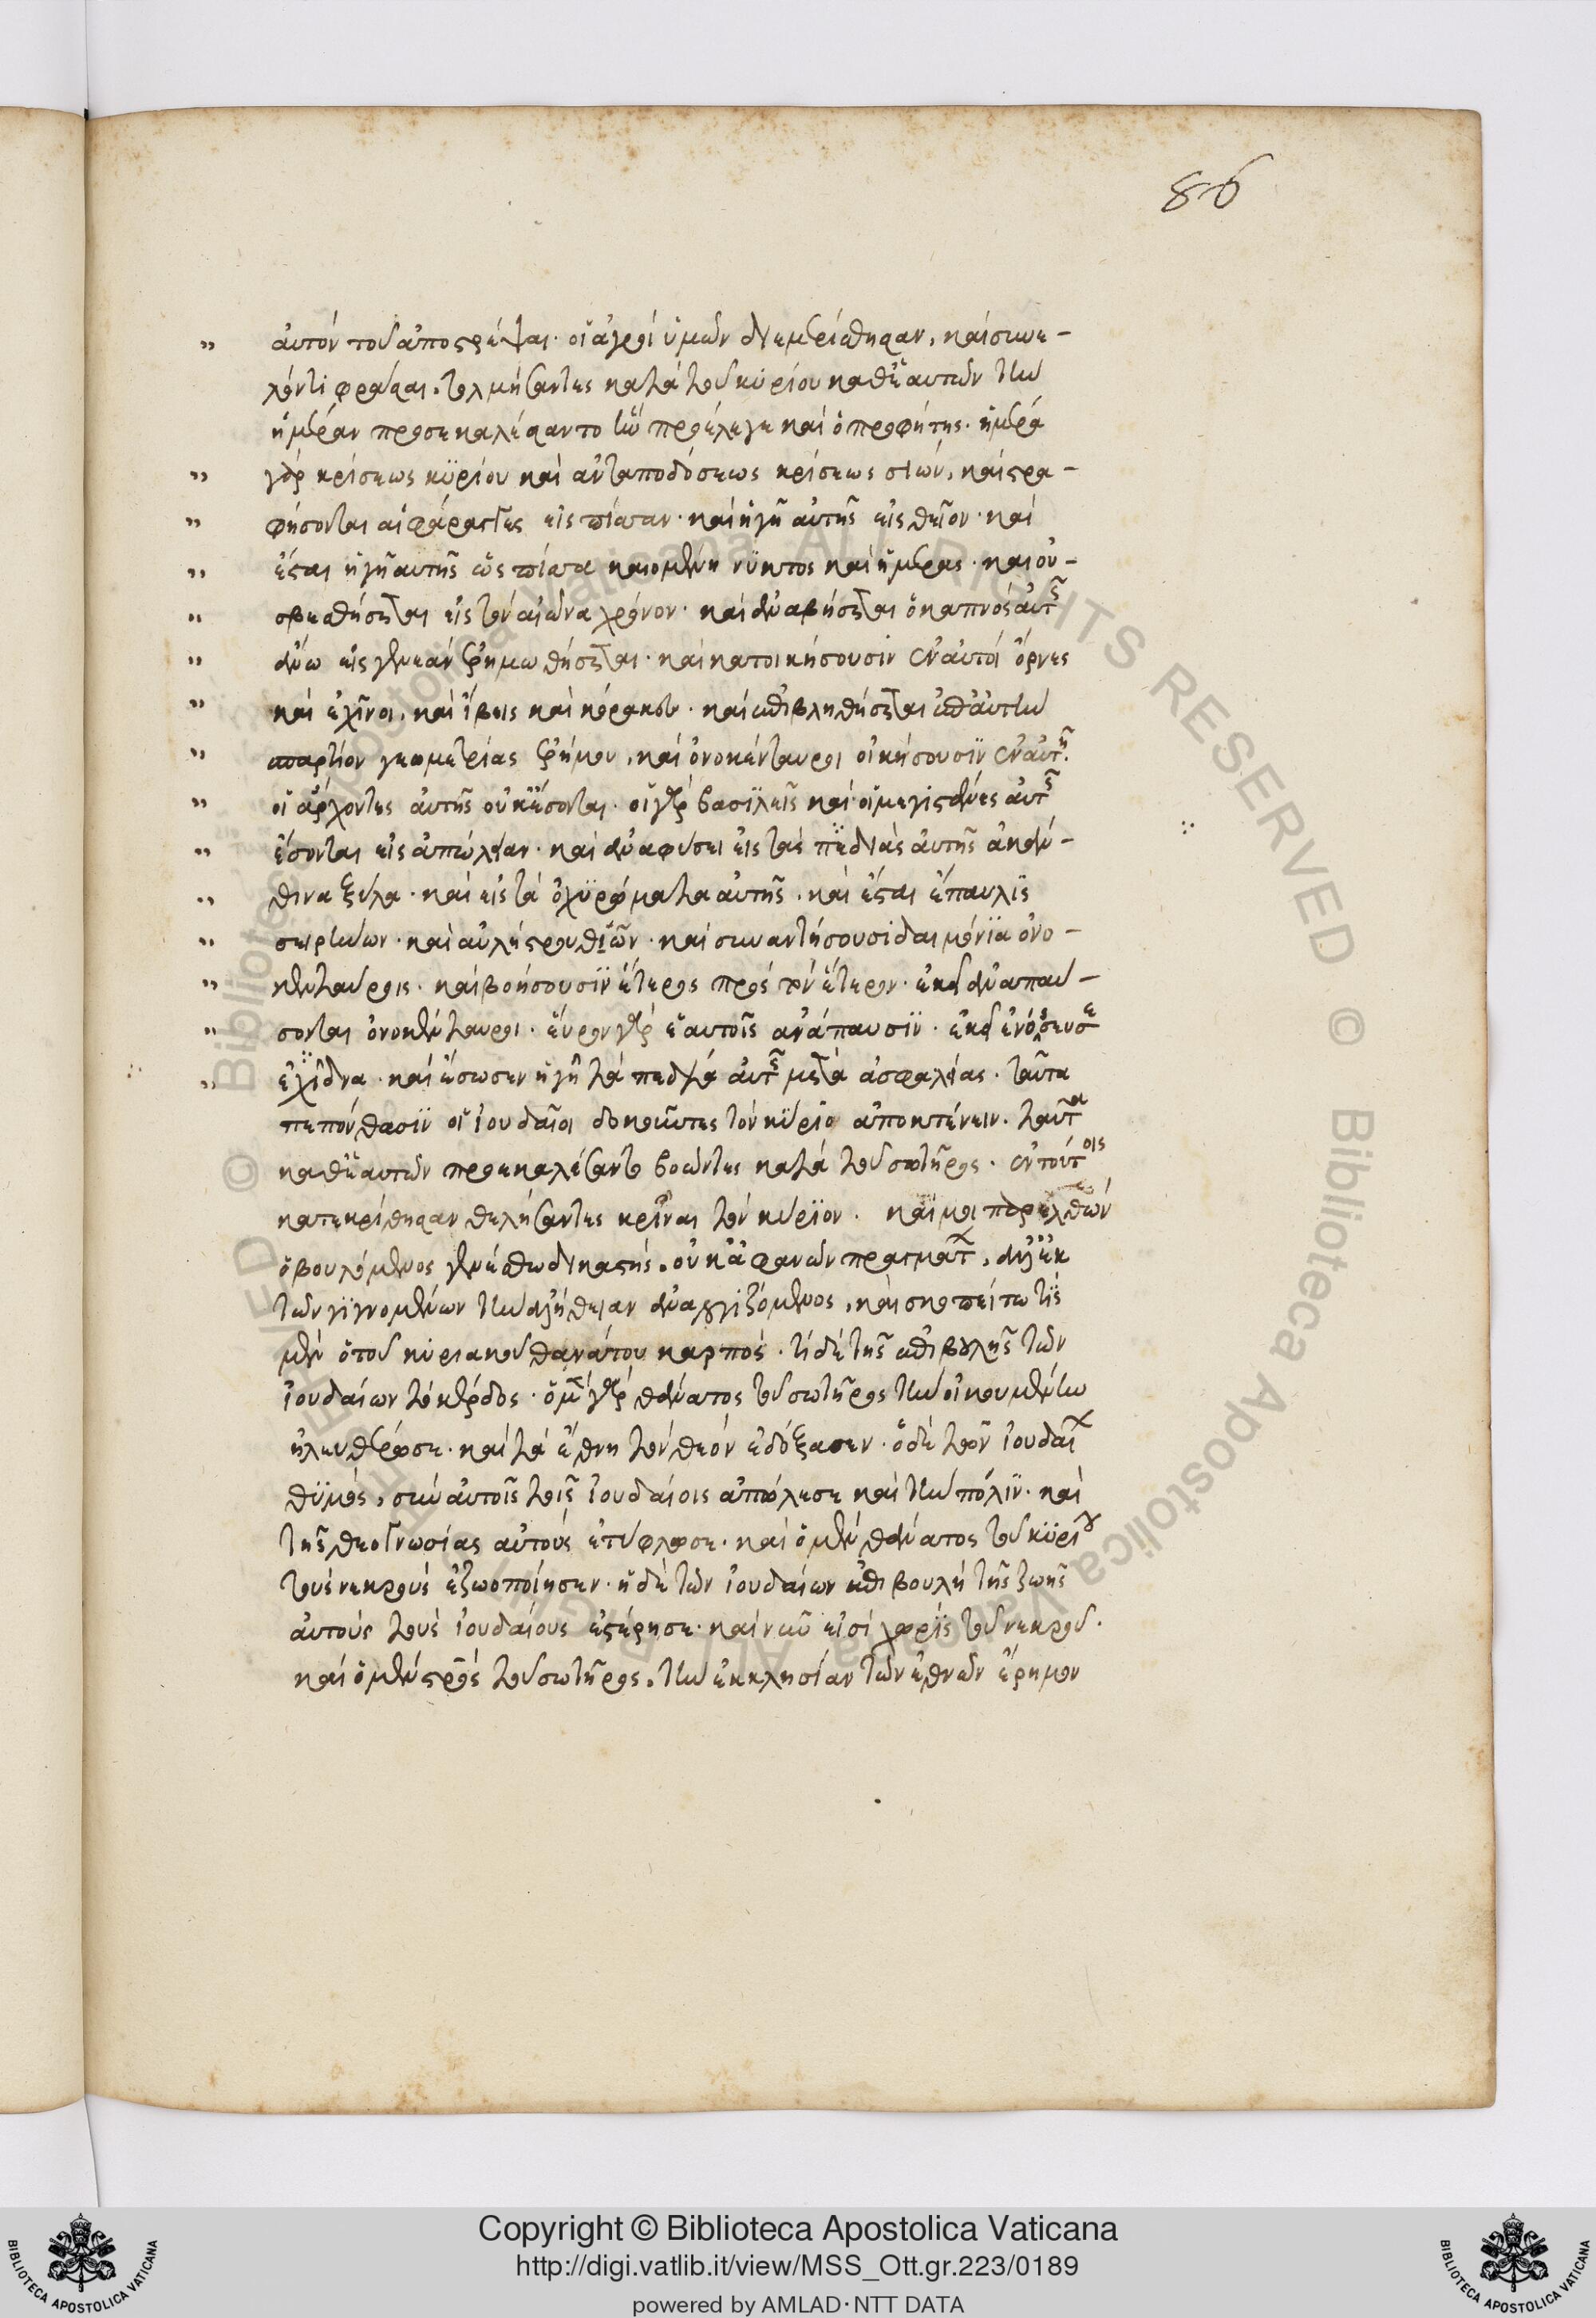 86
αὐτόν τοῦ ἀποστρέψαι· οἱ ἀγροί ὑμῶν διεμερίσθησαν, καί συνε-
λόντι φράσαι, τολμήσαντες κατά τοῦ κυρίου καθ' ἑαυτῶν τὴν
ἡμέραν προσεκαλέσαντο ἣν προέλεγε καί ὁ προφήτης· ἡμέρα
γάρ κρίσεως κυρίου καὶ ἀνταποδόσεως κρίσεως σιών, καί στρα-
φήσονται αἱ φάραγγες εἰς πίσσαν· καί ἡ γῆ αὐτῆς εἰς θεῖον· καί
ἔσται ἡ γῆ αὐτῆς ὡς πίσσα καιομένη νυκτος καί ἡμέρας· καί οὐ-
σβεσθήσεται εἰς τόν αἰῶνα χρόνον· καί ἀναβήσεται ὁ καπνός αὐτῆς
ἄνω εἰς γενεάν ἐρημωθήσεται· καί κατοικήσουσιν ἐν αὐτῇ ὄρνες
καί ἐχῖνοι, καί ἴβεις καί κόρακες· καί ἐπιβληθήσεται ἐπ' αὐτὴν
σπαρτίον γεωμετρίας ἐρήμου, καί ὀνοκένταυροι οἰκήσουσιν ἐν αὐτῇ·
οἱ ἄρχοντες αὐτῆς οὐκ ἔσονται· οἱ γάρ βασιλεῖς καί οἱ μεγιστάνες αὐτῆς
ἔσονται εἰς ἀπώλειαν· καί ἀναφύσει εἰς τάς πεδιάς αὐτῆς ἀκάν-
θινα ξύλα· καί εἰς τά ὀχυρώματα αὐτῆς, καί ἔσται ἔπαυλις
σειρήνων· καί αὐλή στρουθιῶν· καί συναντήσουσι δαιμόνια ὀνο-
κενταύροις· καί βοήσουσιν ἕτερος πρός τόν ἕτερον· ἐκεῖ ἀναπαύ-
σονται ὀνοκένταυροι· εὗρον γάρ ἑαυτοῖς ἀνάπαυσιν· ἐκεῖ ἐνόσσευσε
ἐχίδνα· καί ἔσωσεν ἡ γῆ τά παιδία αὐτῆς μετά ἀσφαλείας· ταῦτα
πεπόνθασιν οἱ ἰουδαῖοι δοκοῦντες τόν κύριον ἀποκτένειν· ταῦτα
καθ' ἑαυτῶν προεκαλέσαντο βοῶντες κατά τοῦ σωτῆρος· ἐν τούτοις
κατεκρίθησαν θελήσαντες κρῖναι τόν κύριον· καί μοι παρελθών
ὁ βουλόμενος γενέσθω δικαστής, οὐκ ἀφανῶν πραγμάτων, ἀλλ' ἐκ
τῶν γιγνομένων τὴν ἀλήθειαν ἀναλογιζόμενος, καί σκοπείτω τίς
μέν ὁ τοῦ κυριακοῦ θανάτου καρπός· τί δέ τῆς ἐπιβουλῆς τῶν
ἰουδαίων τό κέρδος· ὁ μέν γάρ θάνατος τοῦ σωτῆρος τὴν οἰκουμένην
ἠλευθέρωσε· καί τά ἔθνη τόν θεόν ἐδόξασεν· ὁ δέ τῶν ἰουδαίων
θυμός, σύν αὐτοῖς τοῖς ἰουδαίοις ἀπώλεσε καί τὴν πόλιν· καί
τῆς θεογνωσίας αὐτούς ἐτύφλωσε· καί ὁ μέν θάνατος τοῦ κυρίου
τούς νεκρούς ἐζωοποίησεν· ἡ δέ τῶν ἰουδαίων ἐπιβουλή τῆς ζωῆς
αὐτούς τούς ἰουδαίους ἐστέρησε· καί νῦν εἰσί χωρίς τοῦ νεκροῦ·
καί ὁ μέν σταυρός τοῦ σωτῆρος, τὴν ἐκκλησίαν τῶν ἐθνῶν ἔρημον
Copyright © Biblioteca Apostolica Vaticana
http://digi.vatlib.it/view/MSS_Ott.gr.223/0189
powered by AMLAD·NTT DATA